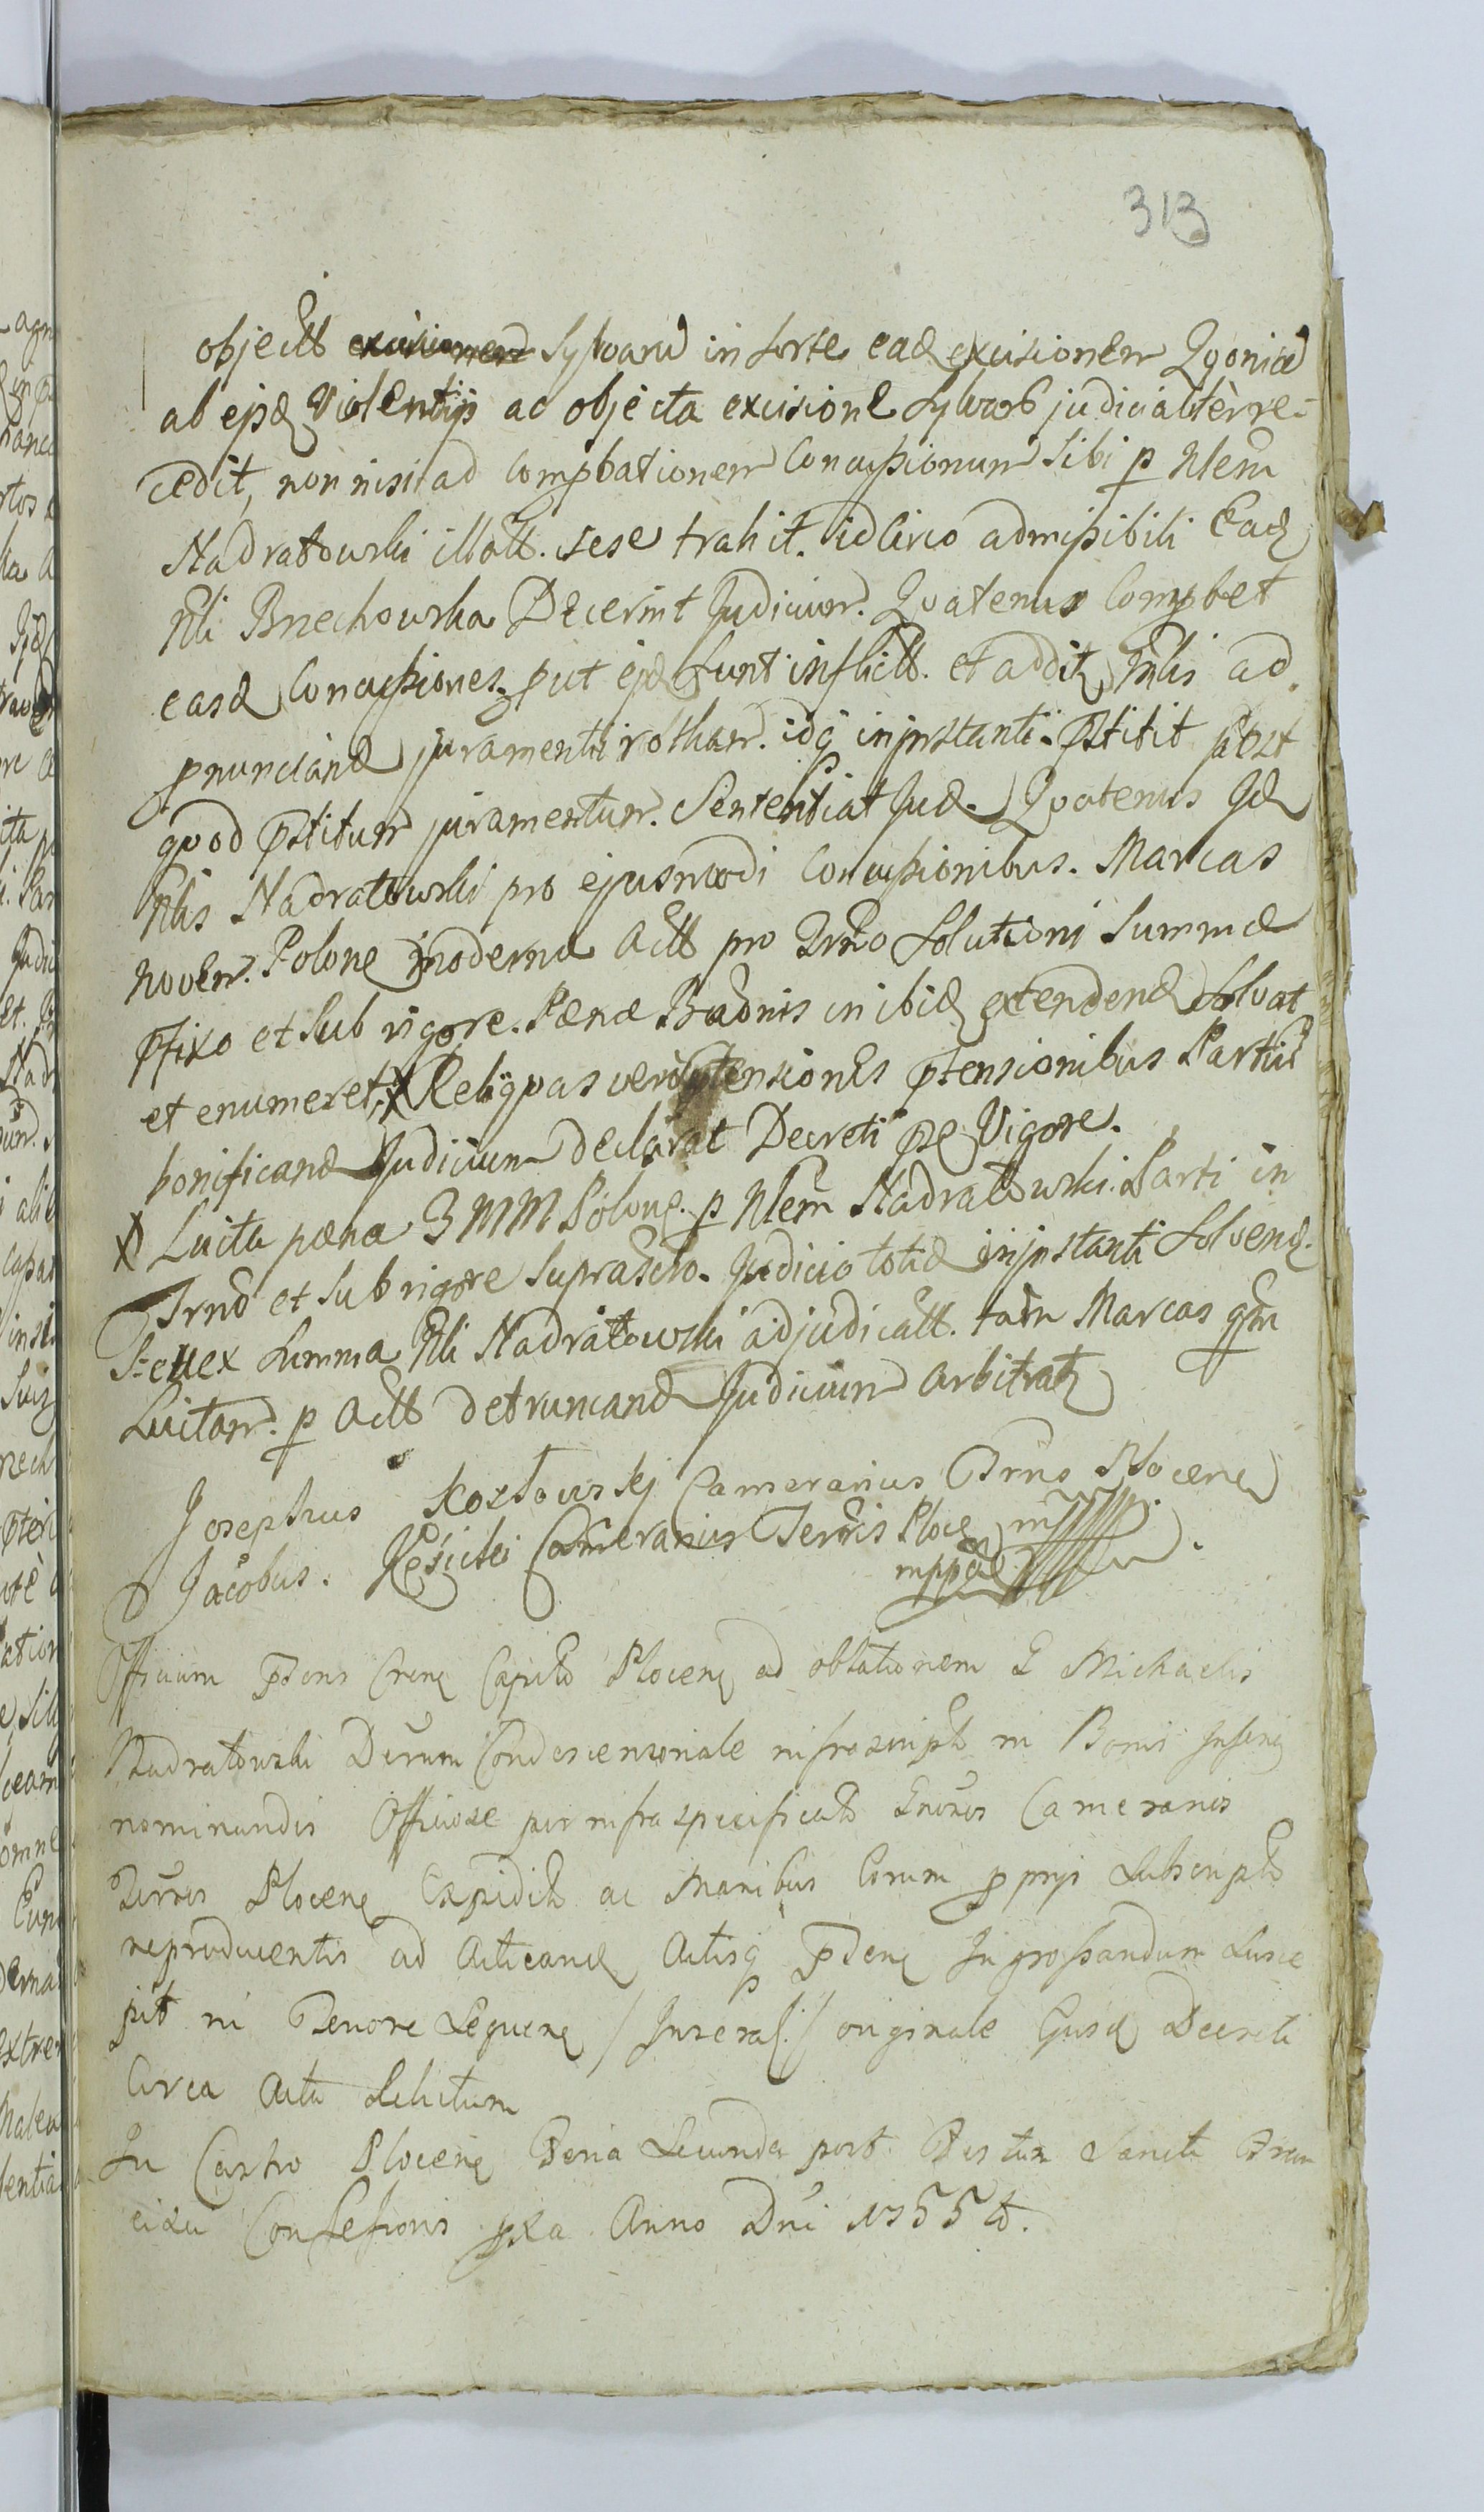 313
objectt excisionem Sylvaru in sorte ead excisionem Qgoniad
ab ejsd Violentijs ac objecta excisione Sylvar judicialiter re-
cedit, non nisi ad compbationem Concussionum sibi p Nlem
Nadratowski illatt. sese trahit. idcirco admissibili Eadq
Nli Brzechowska Decernit Judicium. Qvatenus Compbet
easd Concussiones, put ejsd sunt inflictt. et addit Mlis ad
pnunciand juramenti rotham. idq in jnstanti pstitit post
qvod pstitum juramentum. Sententiat Jud. Qvatenus Jd
Nlis Nadratowski pro ejusmodi Concussionibus. Marcas
novem. Polone moderna Actt pro Trno Solutioni Summæ
pfixo et sub rigore. Pænæ Bannis in ibid extendend Solvat
et enumeret, X Reliqvas vero ptensiones ptensionibus Partiu
bonificand Judicium declarat Decreti pse Vigore.
X Luita pæna 3 MM Polone. p Nlem Nadratowski. Parti in
Trno et sub rigore suprascto. Judicio totid in jnstanti Solvend.
Seu ex Summa Nli Nadratowski adjudicatt. tam Marcas qm
Luitam. p Actt detruncand Judicium arbitratq
Josephus Kozłowskj Camerarius Trris Plocens
Jacobus. Kęsicki Camerarius Terris Ploc mpp
mppa
Officium psens Crens Capitle Plocens ad oblationem G Michaelis
Nadratowski Decrum Condescensionale infrascript in Bonis Inferiq
nominandis Officiose per infra specificatt Gnoros Camerarios
Terrres Plocens Expeditt ac Manibus Eorum pprijs Subscriptt
reproducentis ad Acticandq Actisq psens Ingrossandum Susce
pit in Tenore Sequens / Inseral. / originale Ejusd Decreti
Circa Acta Relictum
In Castro Plocens Feria Secunda post Festum Sancti Fran
cisci Confessoris pxa Anno Dni 1755to.